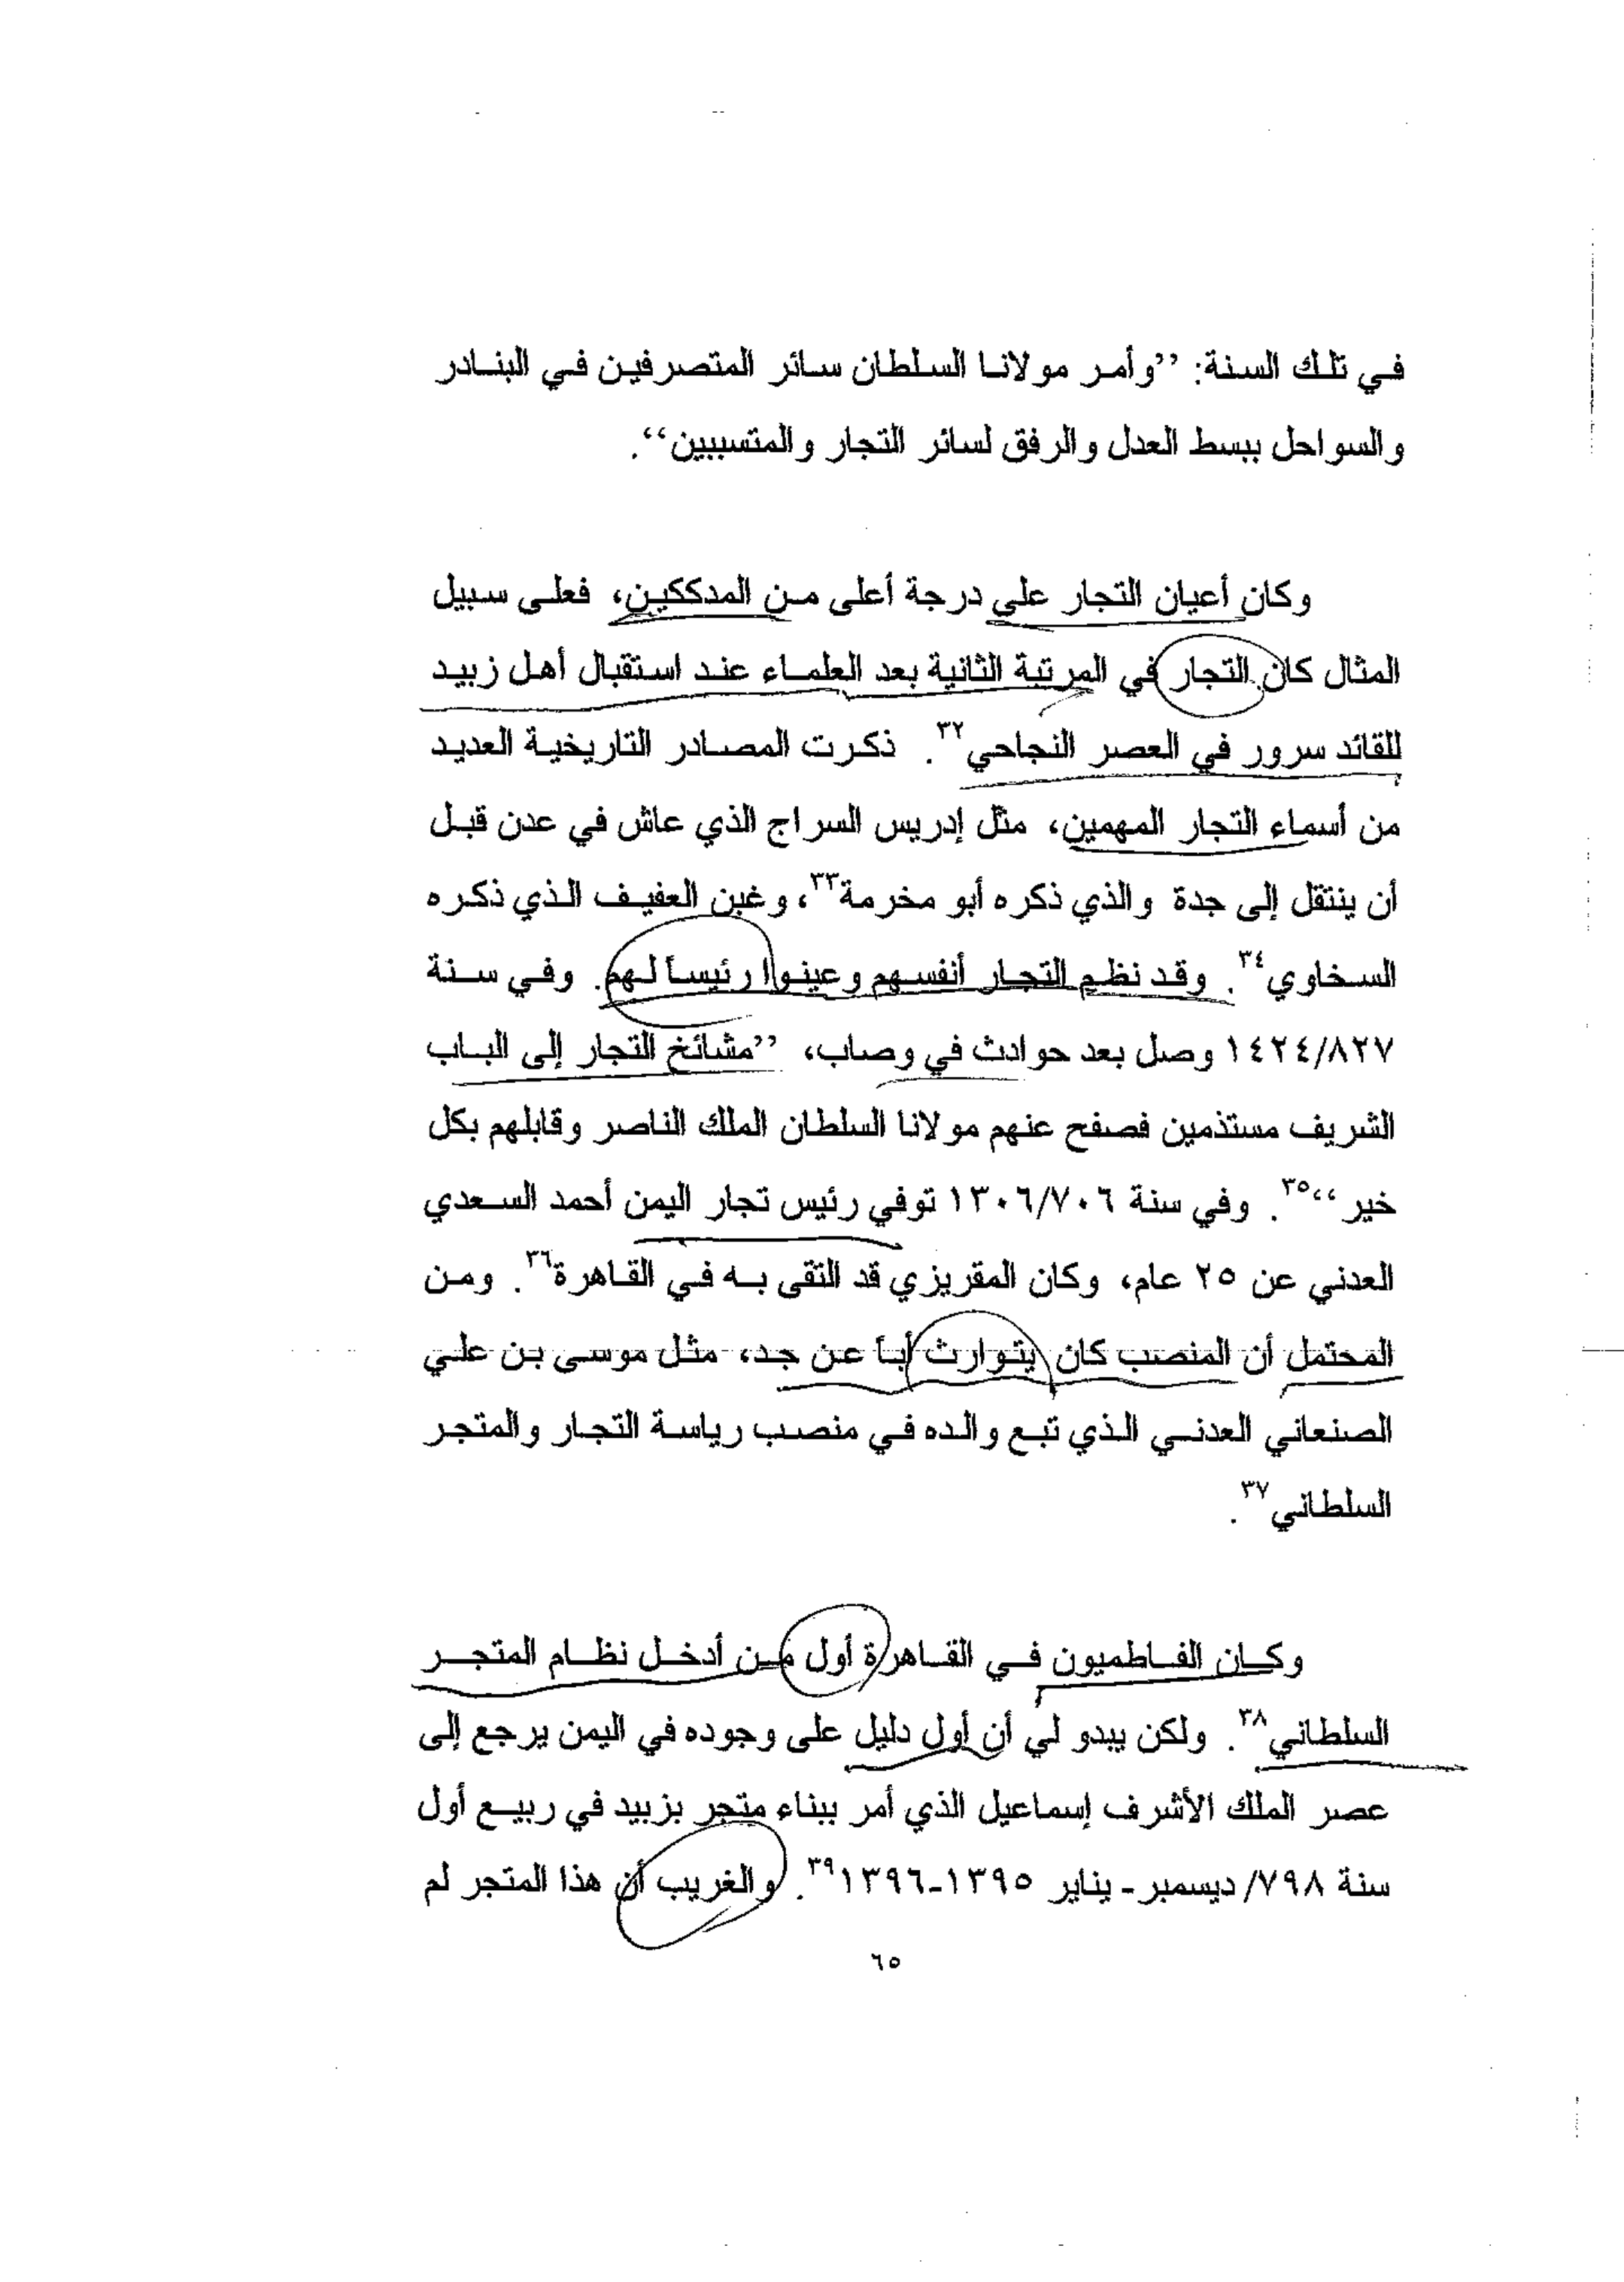 في تلك السنة: ’’وأمر مولانا السلطان سائر المتصرفين في البنادر
والسواحل ببسط العدل والرفق لسائر التجار والمتسببين‘‘.
وكان أعيان التجار على درجة أعلى من المدككين، فعلى سبيل
المثال كان التجار في المرتبة الثانية بعد العلماء عند استقبال أهل زبيد
للقائد سرور في العصر النجاحي٣٢. ذكرت المصادر التاريخية العديد
من أسماء التجار المهمين، مثل إدريس السراج الذي عاش في عدن قبل
أن ينتقل إلى جدة والذي ذكره أبو مخرمة٣٣، وغبن العفيف الذي ذكره
السخاوي٣٤. وقد نظم التجار أنفسهم وعينوا رئيساً لهم. وفي سنة
١٤٢٤/٨٢٧ وصل بعد حوادث في وصاب، ’’مشائخ التجار إلى الباب
الشريف مستذمين فصفح عنهم مولانا السلطان الملك الناصر وقابلهم بكل
خير‘‘٣٥. وفي سنة ١٣٠٦/٧٠٦ توفي رئيس تجار اليمن أحمد السعدي
العدني عن ٢٥ عام، وكان المقريزي قد التقى به في القاهرة٣٦. ومن
المحتمل أن المنصب كان يتوارث أباً عن جد، مثل موسى بن علي
الصنعاني العدني الذي تبع والده في منصب رياسة التجار والمتجر
السلطاني٣٧.
وكان الفاطميون في القاهرة أول من أدخل نظام المتجر
السلطاني٣٨. ولكن يبدو لي أن أول دليل على وجوده في اليمن يرجع إلى
عصر الملك الأشرف إسماعيل الذي أمر ببناء متجر بزبيد في ربيع أول
سنة ٧٩٨/ ديسمبر- يناير ١٣٩٥-١٣٩٦٣٩. والغريب أن هذا المتجر لم
٦٥